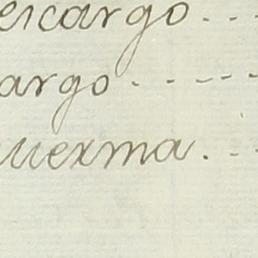 escargo. - - -
argo. - - - -
uerma. - -